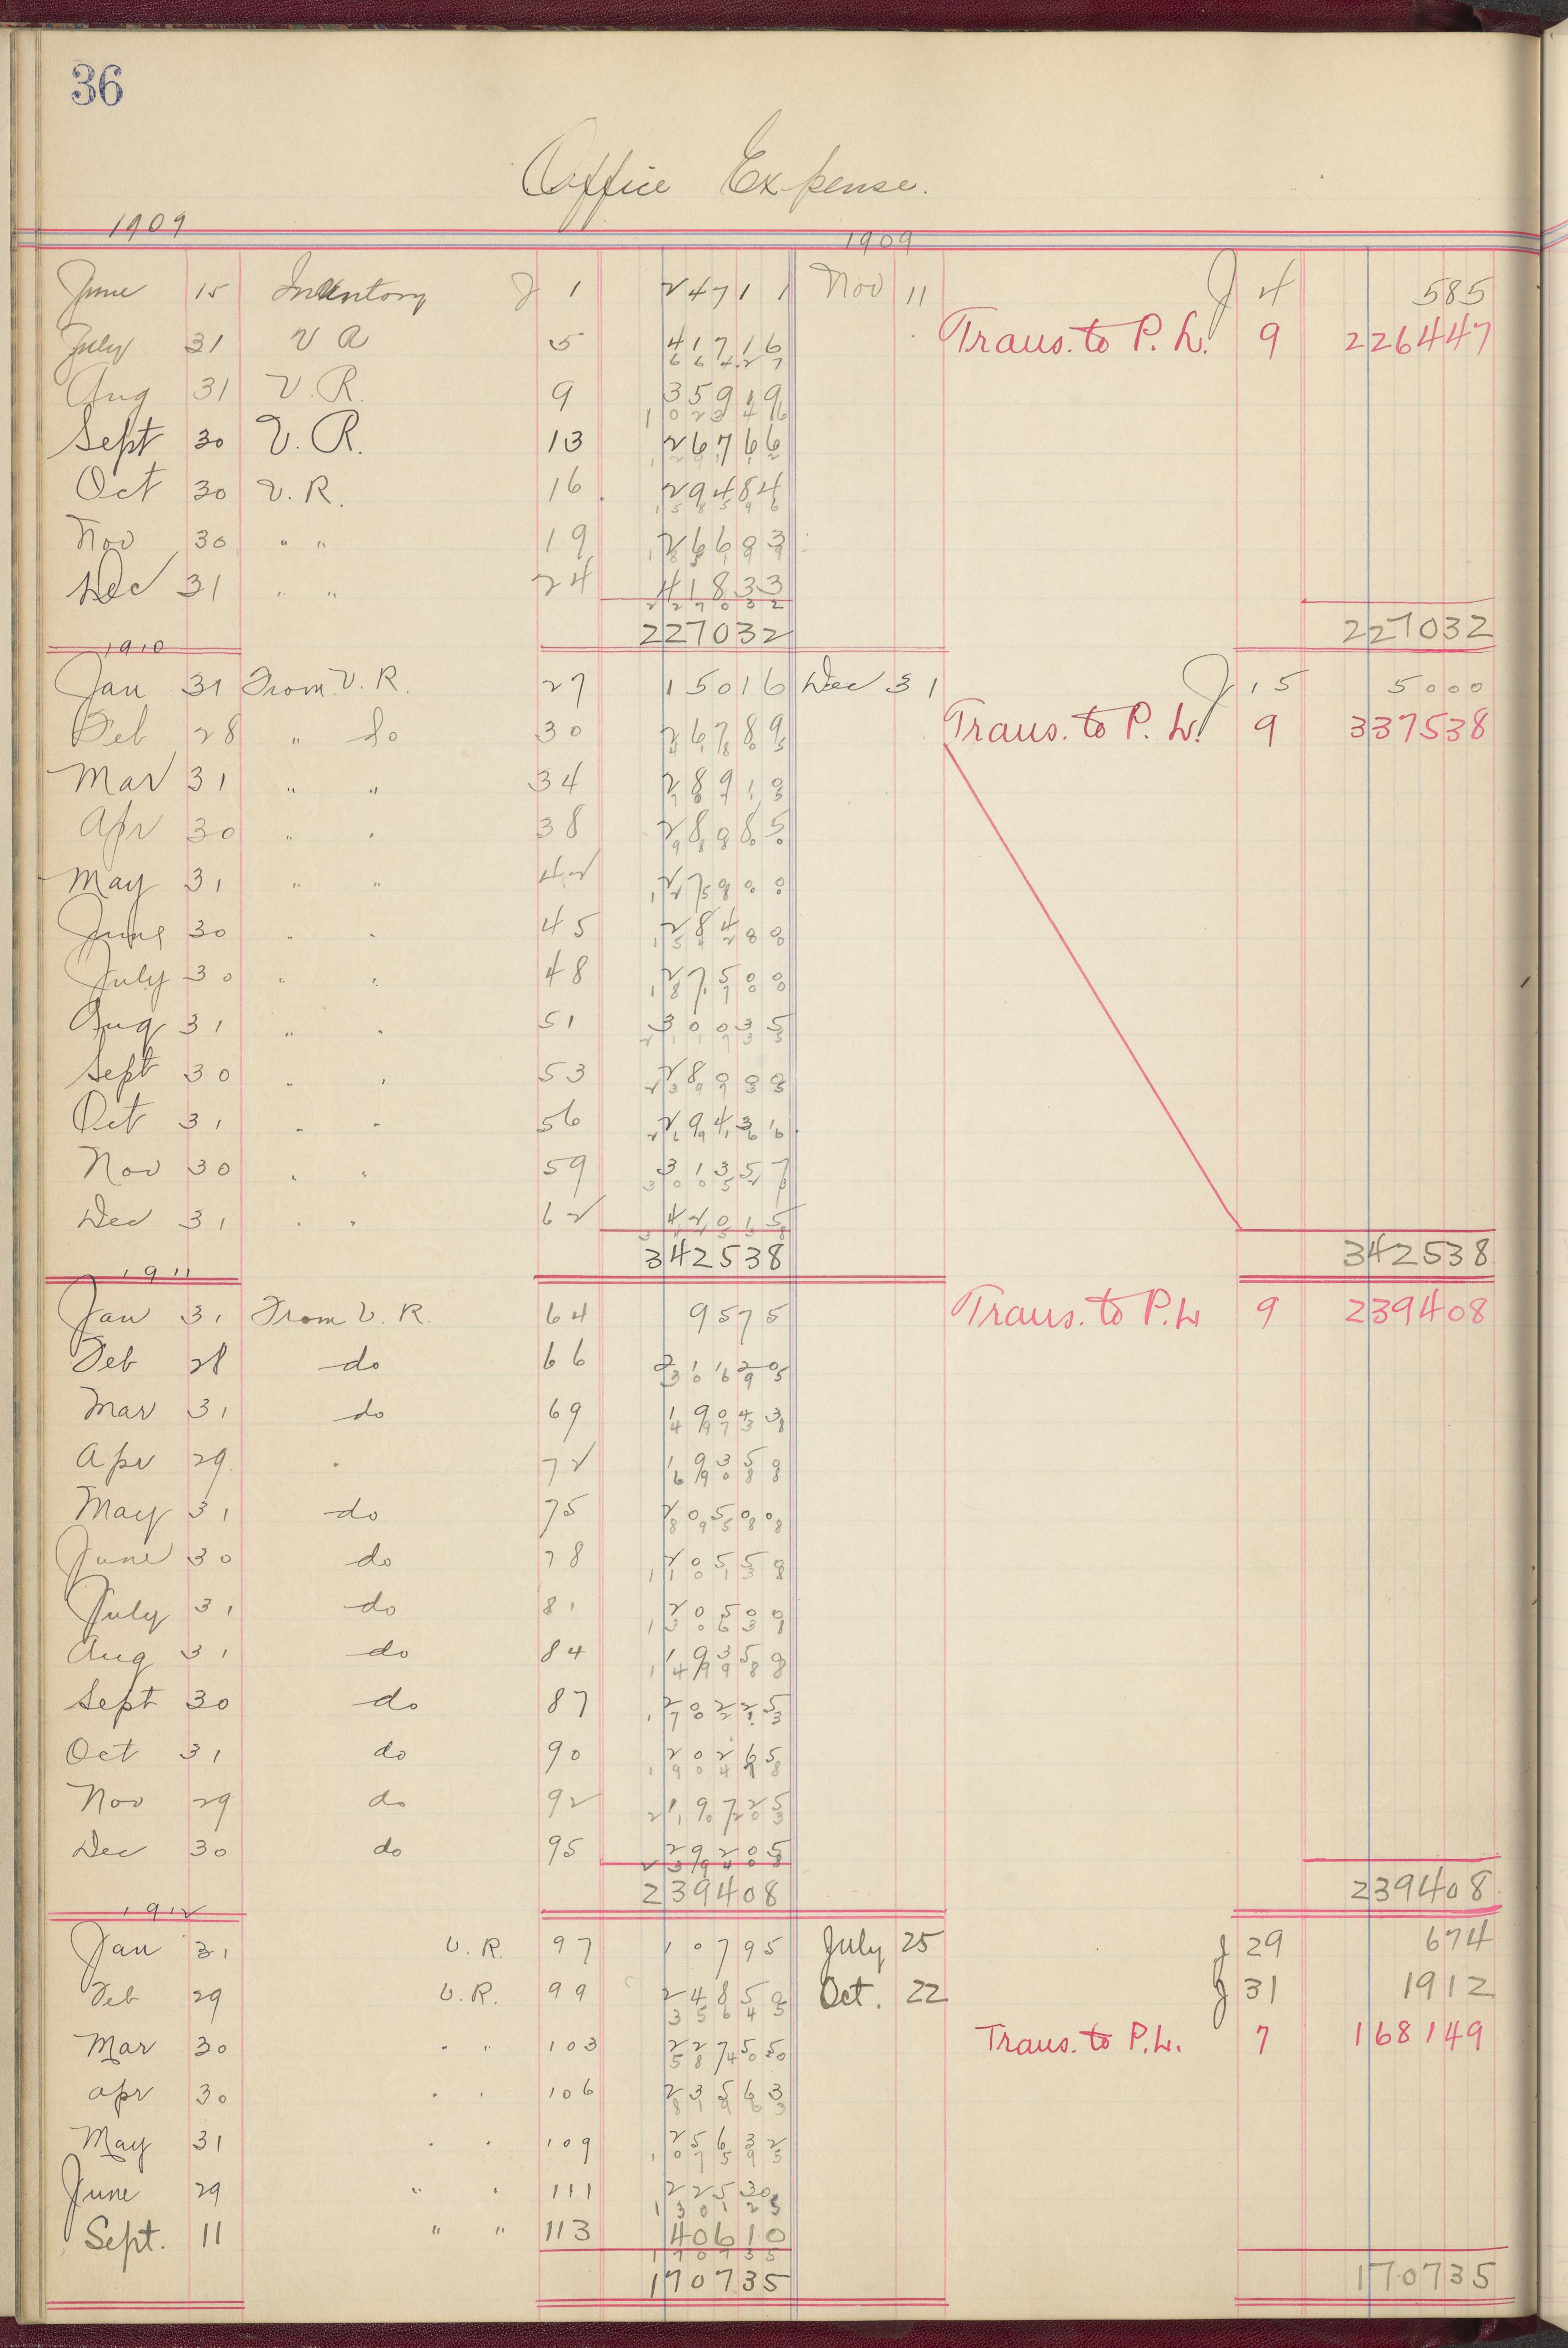 36
Office Expense.
1909 1909
June 15 Inventory J 1 24711 Nov 11 J 4 585
July 31 V R 5 41716 Trans. to P. L. 9 226447
66427
Aug 31 V. R. 9 35919
102346
Sept 30 V. R. 13 26766
129112
Oct 30 V. R. 16 29484
158596
Nov 30 " " 19 26603
185199
Dec 31 " " 24 41833
227032
227032 227032
1910
Jan 31 From V. R. 27 15016 Dec 31 J 15 5000
Feb 28 " do 30 26789 Trans. to P. L. 9 337538
41805
Mar 31 " " 34 28910
70715
Apr 30 " " 38 28085
98800
May 31 " " 42 27000
125800
June 30 " " 45 28400
154200
July 30 " " 48 27500
181700
Aug 31 " " 51 30035
211735
Sept 30 " " 53 28000
239735
Oct 31 " " 56 29431
269166
Nov 30 " " 59 31357
300523
Dec 31 " " 62 42015
342538
342538 342538
1911
Jan 31 From V. R. 64 9575 Trans. to P. L 9 239408
Feb 28 do 66 21120
30695
Mar 31 do 69 19043
49738
Apr 29 " 72 19350
69088
May 31 do 75 20500
89588
June 30 do 78 20550
110138
July 31 do 81 20500
130638
Aug 31 do 84 19350
149988
Sept 30 do 87 20225
170213
Oct 31 do 90 20265
190478
Nov 29 do 92 19725
210203
Dec 30 do 95 29205
239408
239408 239408
1912
Jan 31 V. R. 97 10795 July 25 J 29 674
Feb 29 V. R. 99 24850 Oct. 22 J 31 1912
35645
Mar 30 " " 103 22755 Trans. to P. L. 7 168149
58400
Apr 30 " " 106 23563
81963
May 31 " " 109 25632
107595
June 29 " " 111 22530
130125
Sept. 11 " " 113 40610
170735
170735 170735